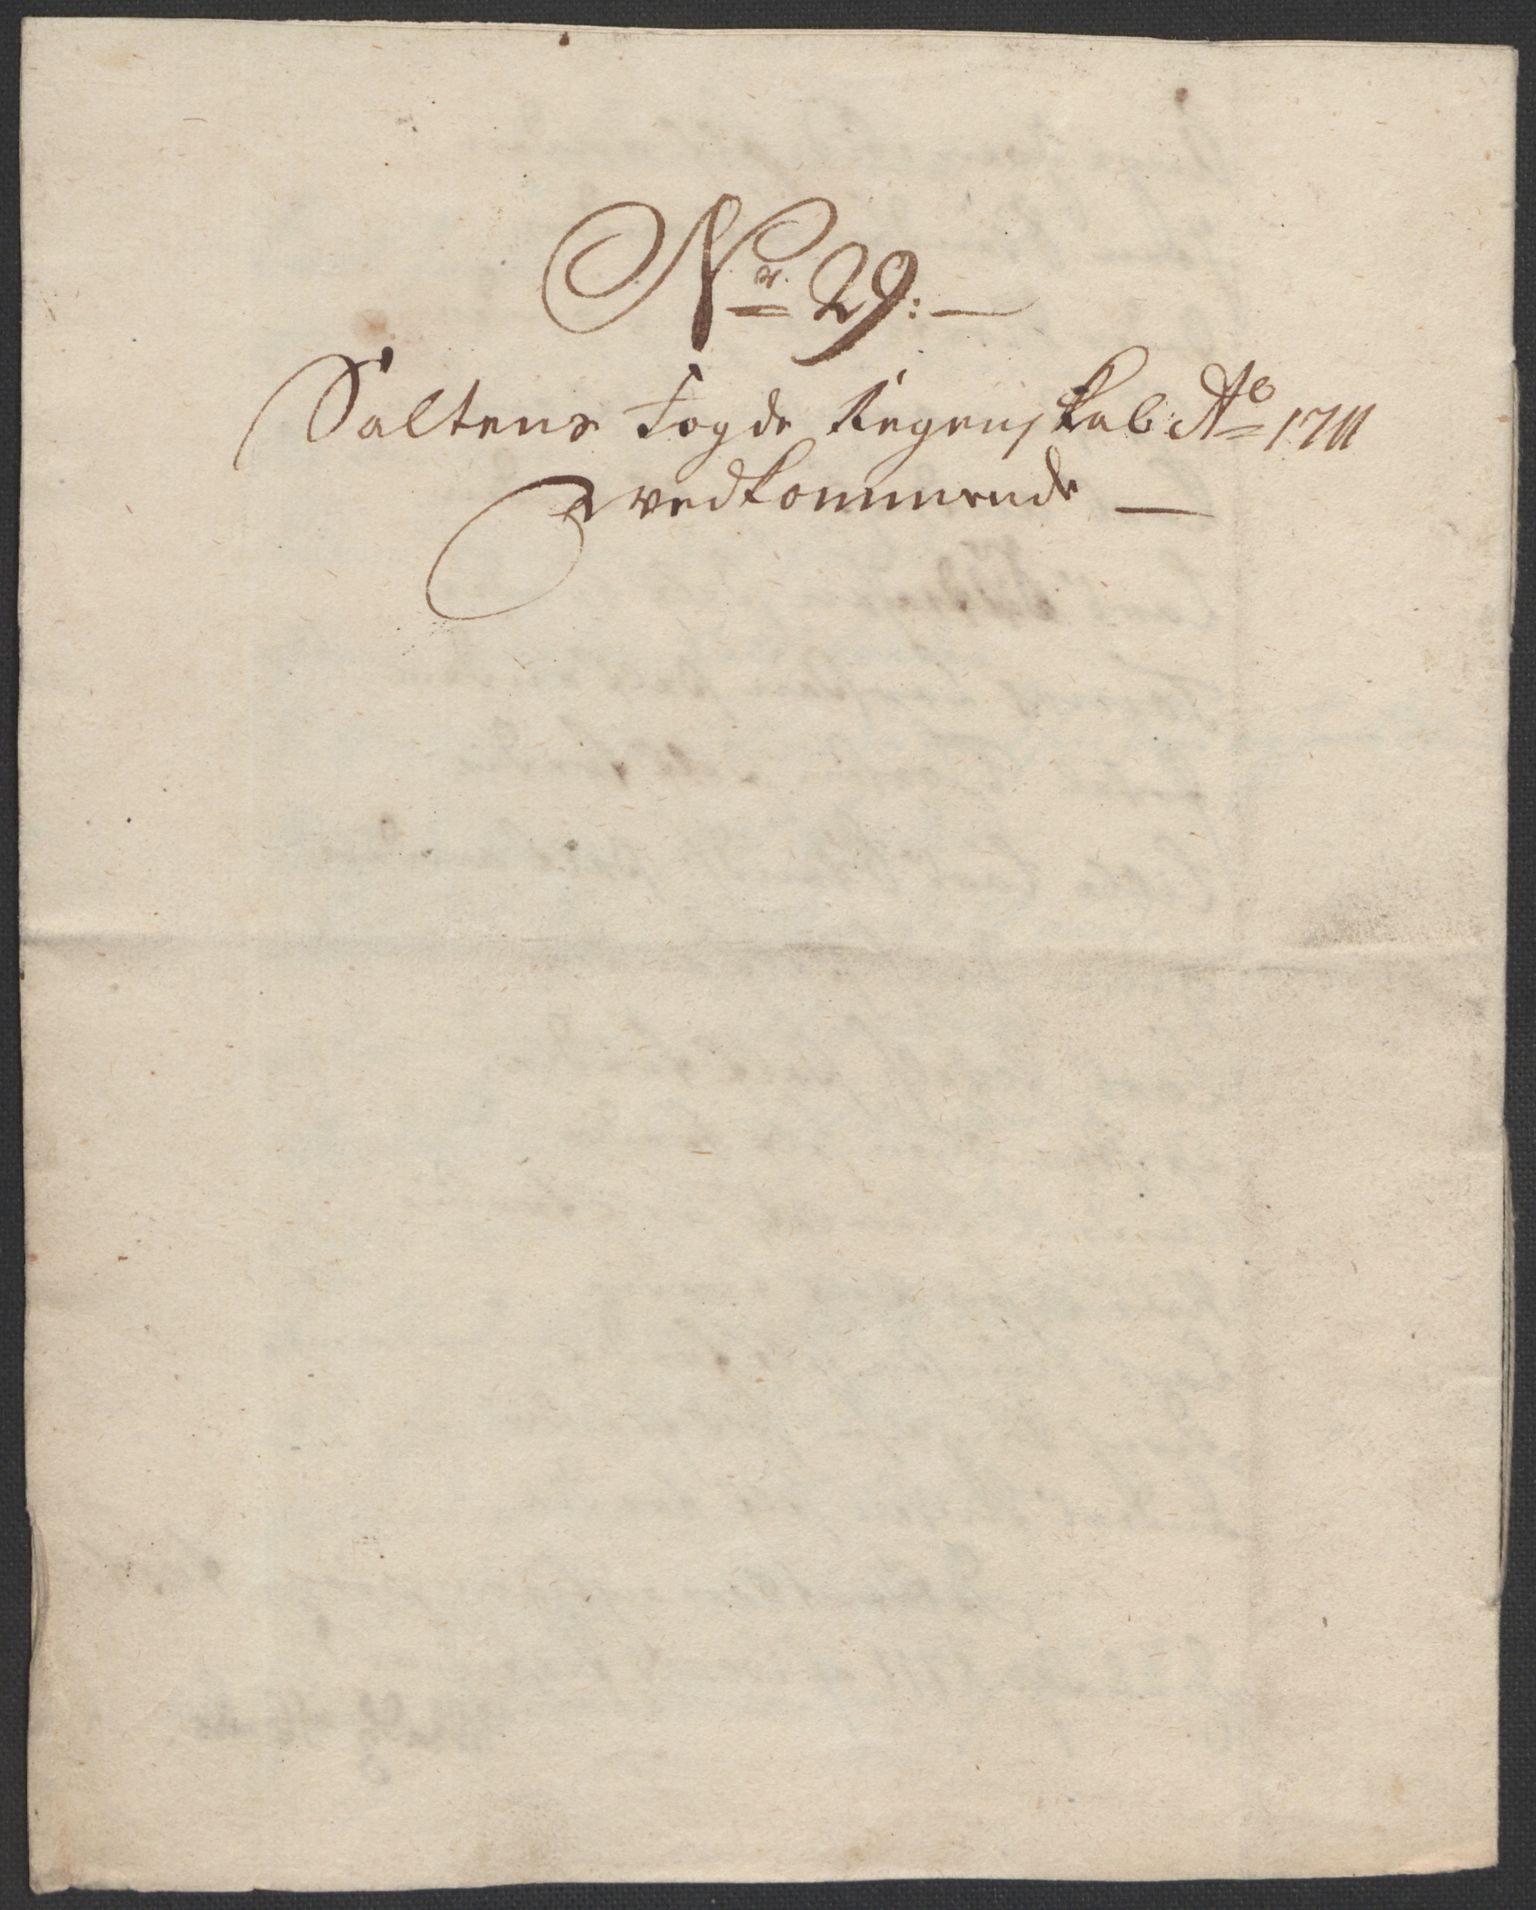 Nr. 29:
Saltens Fogde Regenskab Ao 1711
vedkommende